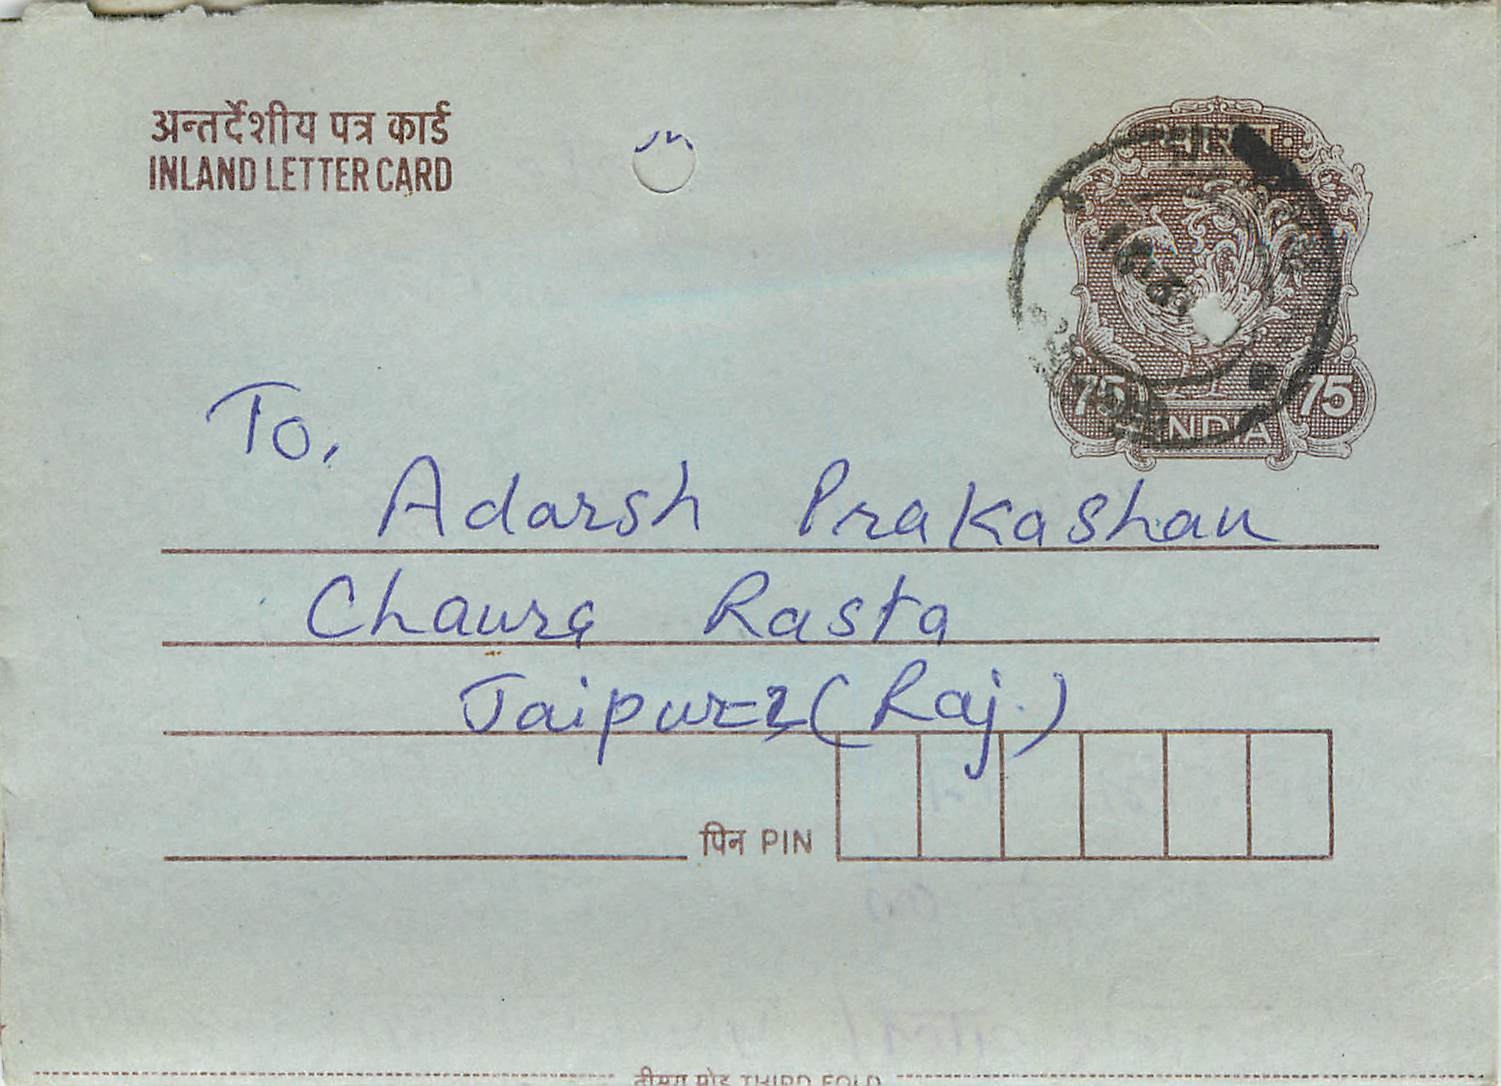 अन्तर्देशीय पत्र कार्ड
INLAND LETTER CARD
भारत
75 INDIA 75
To,
Adarsh Prakashan
Chaura Rasta
Jaipur-2 (Raj.)
पिन PIN
तीसरा मोड़ THIRD FOLD